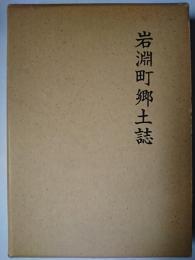 岩淵町郷土誌